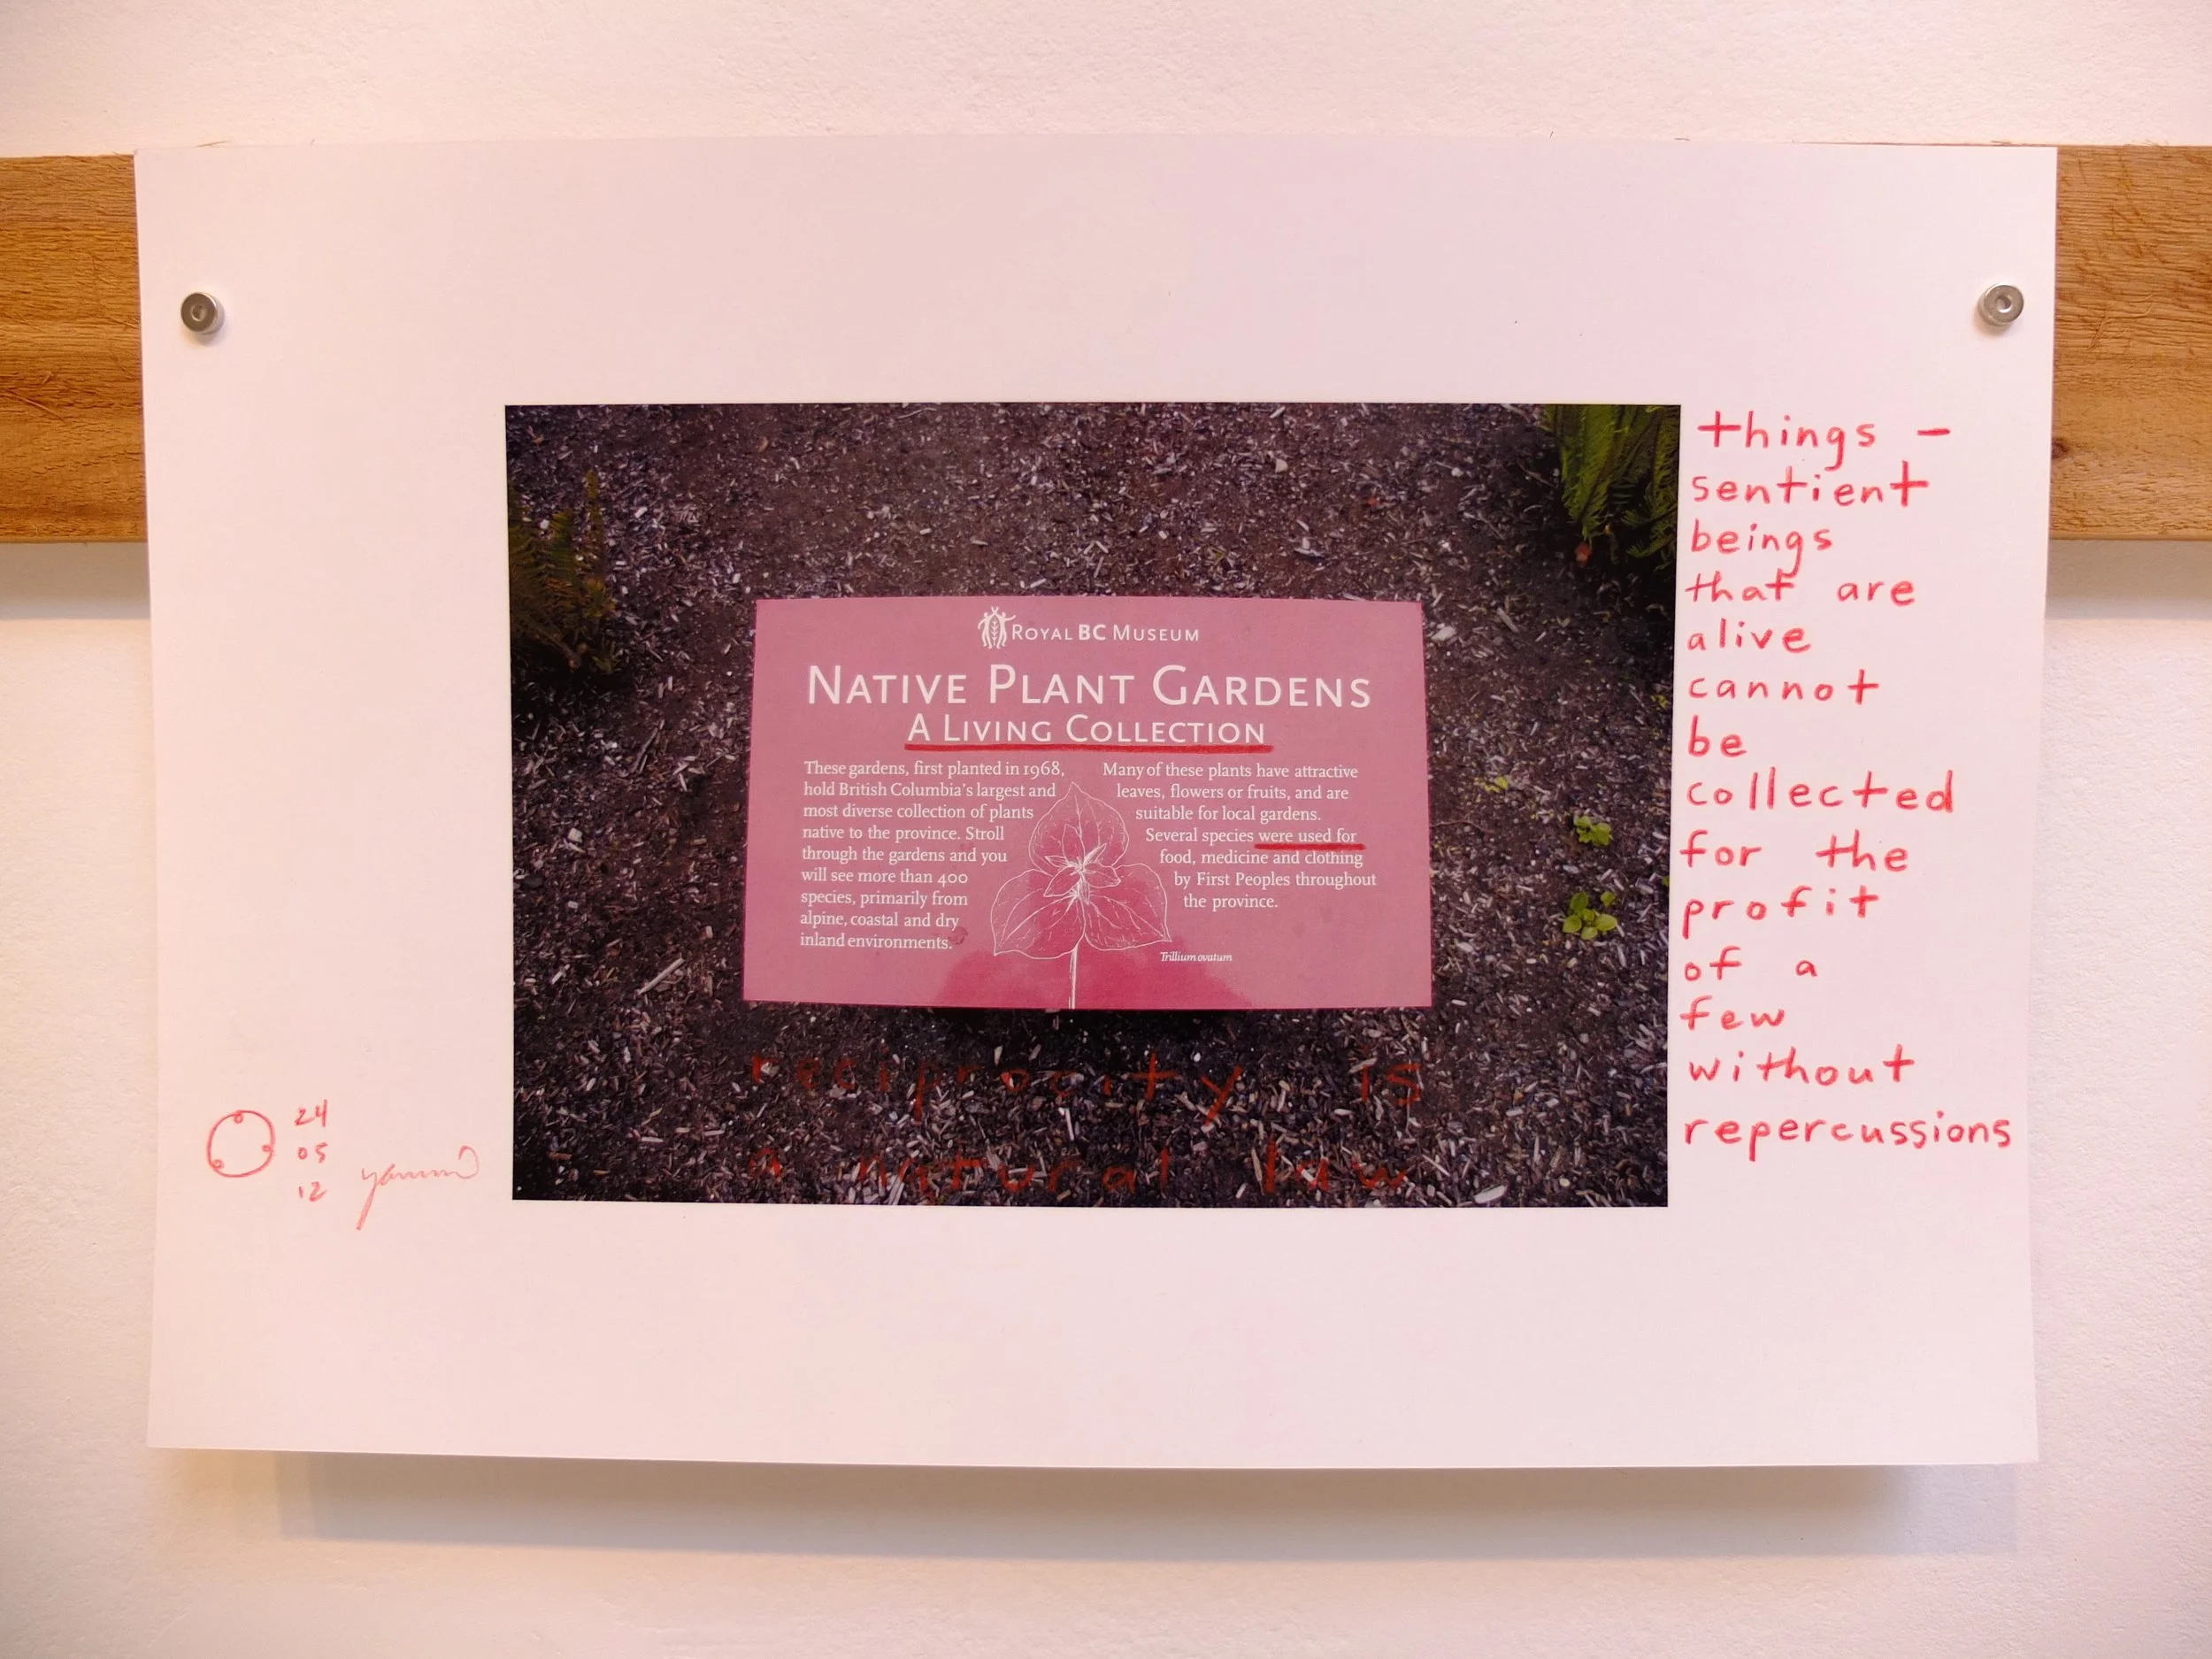 ROYAL BC MUSEUM
NATIVE PLANT GARDENS
A LIVING COLLECTION
These gardens, first planted in 1968,
hold British Columbia's largest and
most diverse collection of plants
native to the province. Stroll
through the gardens and you
will see more than 400
species, primarily from
alpine, coastal and dry
inland environments.
Many of these plants have attractive
leaves, flowers or fruits, and are
suitable for local gardens.
Several species were used for
food, medicine and clothing
by First Peoples throughout
the province.
Trillium ovatum
reciprocity is
a natural law
things -
sentient
beings
that are
alive
cannot
be
collected
for the
profit
of a
few
without
repercussions
24
05
12